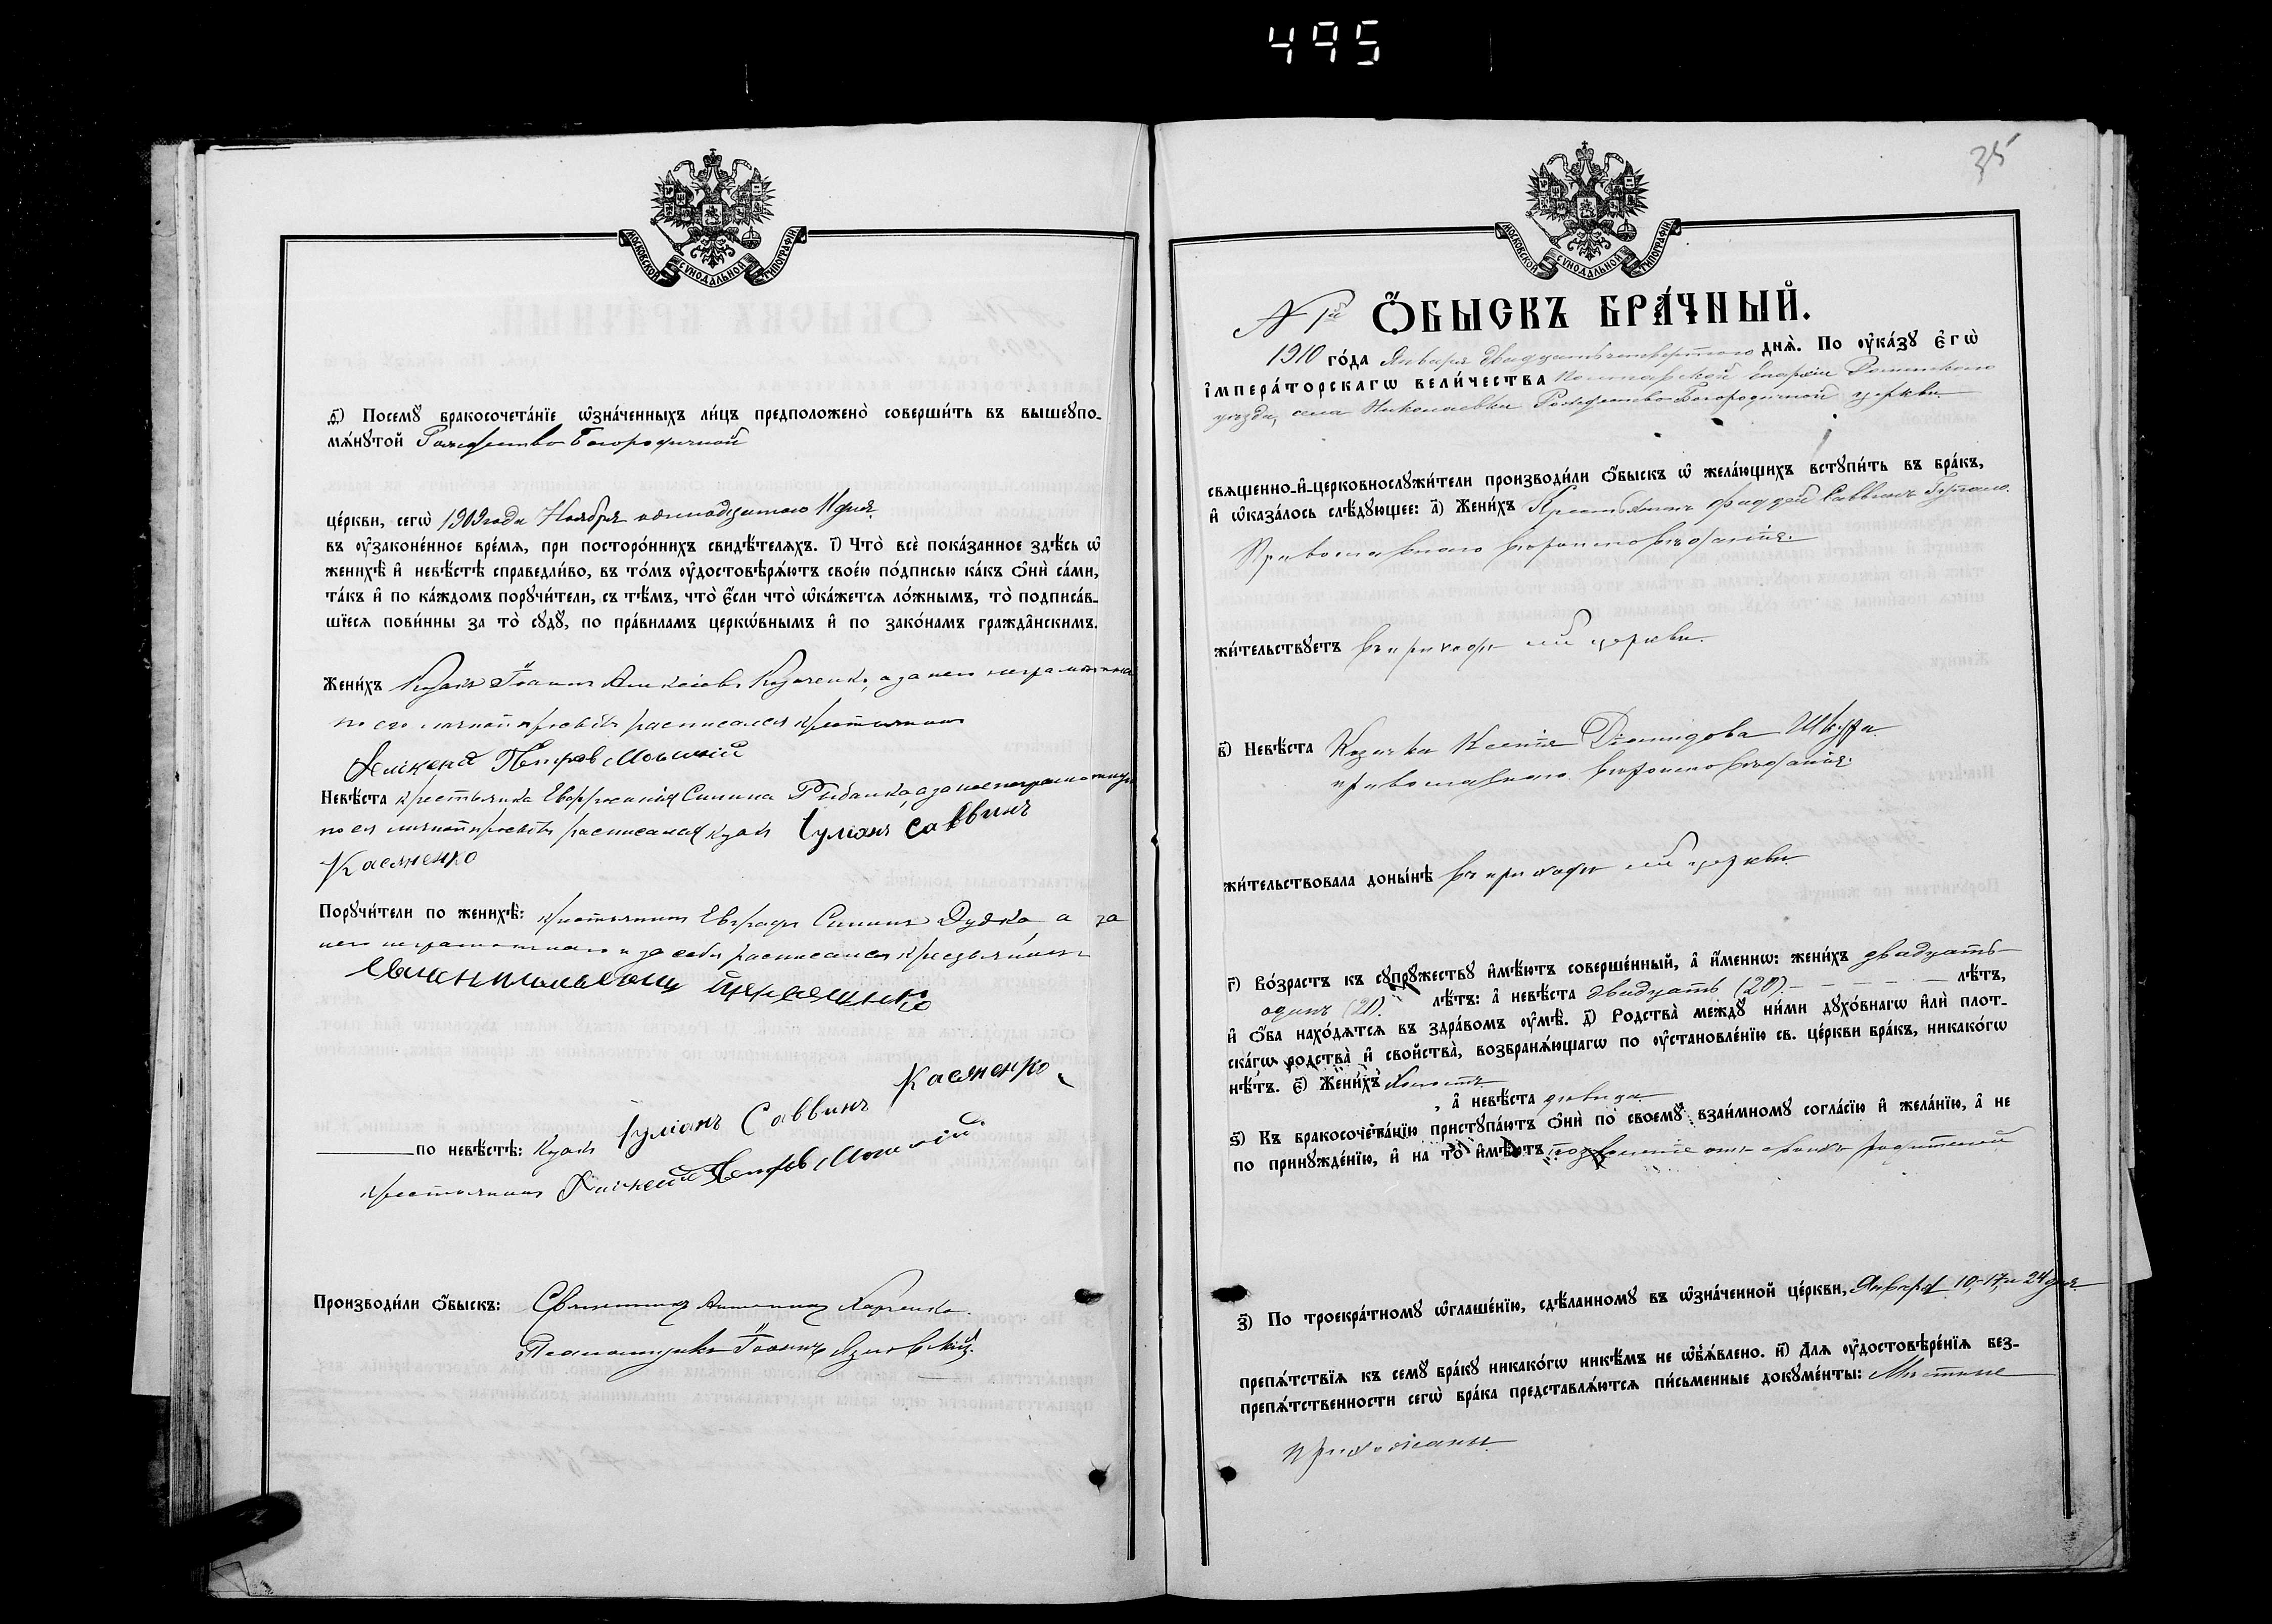 495
МОСКОВСКОЙ СУНОДАЛЬНОЙ ТИПОГРАФІИ
д҃) Посемꙋ̀ бракосочета́нїе ѡ҆зна́ченныхъ ли́цъ предположено̀ соверши́ть въ вышеꙋпо-
мѧ́нꙋтой Рождество Богородичной
це́ркви, сегѡ̀ 1909 года Ноября одиннадцатаго 11 дня
въ оу҆законе́нное вре́мѧ, при посторо́ннихъ свидѣ́телѧхъ. і҃) Что̀ всѐ пока́занное здѣ́сь ѡ҆
женихѣ̀ и҆ невѣ́стѣ справедли́во, въ то́мъ оу҆достовѣрѧ́ютъ свое́ю по́дписью ка́къ ѻ҆нѝ са́ми,
та́къ и҆ по ка́ждомъ порꙋчи́тели, съ тѣ́мъ, что̀ є҆́сли что̀ ѡ҆ка́жетсѧ ло́жнымъ, то̀ подписа́в-
шїесѧ пови́нны за то̀ сꙋдꙋ̀, по пра́виламъ церкѡ́внымъ и҆ по зако́намъ гражда̂нскимъ.
Жени́хъ Козакъ Іоаннъ Алексіевъ Козаченко, а за него неграмотнаго
по его личной просьбѣ расписался крестьянинъ
Алѣксей Петров
Невѣ́ста крестьянка Евфросинія Рыбалка, а за нее неграмотную
по ея личной просьбѣ расписался козакъ Іуліанъ Саввинъ
Касяненко
Порꙋчи́тели по женихѣ̀: крестьянинъ Евграфъ Дудка а за
него неграмотнаго и за себя расписался крестьянинъ
по невѣ́стѣ: козакъ Іуліанъ Саввинъ Касяненко
крестьянинъ Алѣксей Петров
Производи́ли ѻ҆́быскъ: Священникъ Харченко.
Псаломщикъ Іоаннъ
35
МОСКОВСКОЙ СУНОДАЛЬНОЙ ТИПОГРАФІИ
N 1й Ѻ҆́БЫСКЪ БРА́ЧНЫЙ.
1910 го́да Января двадцать четвертого днѧ̀. По оу҆ка́зꙋ є҆гѡ̀
і҆мпера́торскагѡ вели́чества Полтавской Епархіи Роменскаго
уѣзда, села Николаевки Рождество-Богородичной церкви
свѧщенно-и҆-церковнослꙋжи́тели производи́ли ѻ҆́быскъ ѡ҆ жела́ющихъ встꙋпи́ть въ бра́къ,
и҆ ѡ҆каза́лось слѣ́дꙋющее: а҃) Жени́хъ Крестьянинъ Фаддей Саввинъ
Православнаго вѣроисповѣданія.
жи́тельствꙋетъ въ приходѣ сей церкви.
в҃) Невѣ́ста Козачка Ксенія Діомидова Шкура
православнаго вѣроисповѣданія.
жи́тельствовала доны́нѣ въ приходѣ сей церкви
г҃) Во́зрастъ къ сꙋпрꙋ́жествꙋ и҆мѣ́ютъ соверше́нный, а҆ и҆́менно: жени́хъ двадцать
одинъ (21). лѣ́тъ: а҆ невѣ́ста двадцать (20). лѣ́тъ,
и҆ ѻ҆́ба нахо́дѧтсѧ въ здра́вомъ оу҆мѣ̀. д҃) Родства̀ междꙋ̀ ни́ми дꙋхо́внагѡ и҆лѝ плот-
ска́гѡ родства̀ и҆ сво́йства̀, возбранѧ́ющагѡ по оу҆становле́нїю св. це́ркви бра́къ, никако́гѡ
нѣ́тъ. є҃) Жени́хъ холостъ
, а҆ невѣ́ста дѣвица
ѕ҃) Къ бракосочета́нїю пристꙋпа́ютъ ѻ҆нѝ по своемꙋ̀ взаи́мномꙋ согла́сїю и҆ жела́нїю, а҆ не
по принꙋжде́нїю, и҆ на то̀ и҆мѣ́ютъ позволеніе отъ своихъ родителей
з҃) По троекра́тномꙋ ѡ҆глаше́нїю, сдѣ́ланномꙋ въ ѡ҆зна́ченной це́ркви, Января 10, 17, и 24 дня
препѧ́тствїѧ къ семꙋ̀ бра́кꙋ никако́гѡ никѣ́мъ не ѡ҆б̾ѧ́влено. и҃) Длѧ оу҆достовѣре́нїѧ без-
препѧ́тственности сегѡ̀ бра́ка представлѧ́ютсѧ пи́сьменные докꙋме́нты: Мѣстные
прихожане